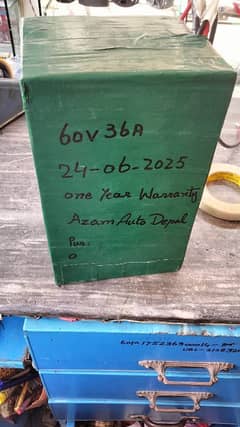 60V 36A
24-06-2025
one Year Warranty
Azam Auto Depal
Pus:
0